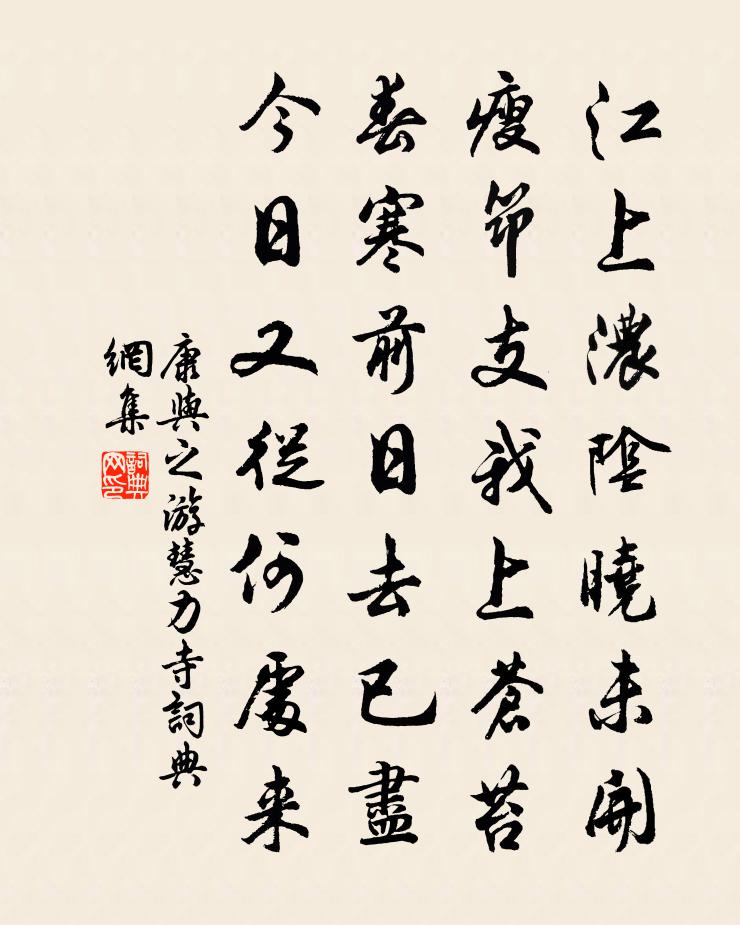 江上濃陰曉未開
瘦筇支我上蒼苔
春寒前日去已盡
今日又從何處来
康與之游慧力寺詞典
網集
詞典
网印